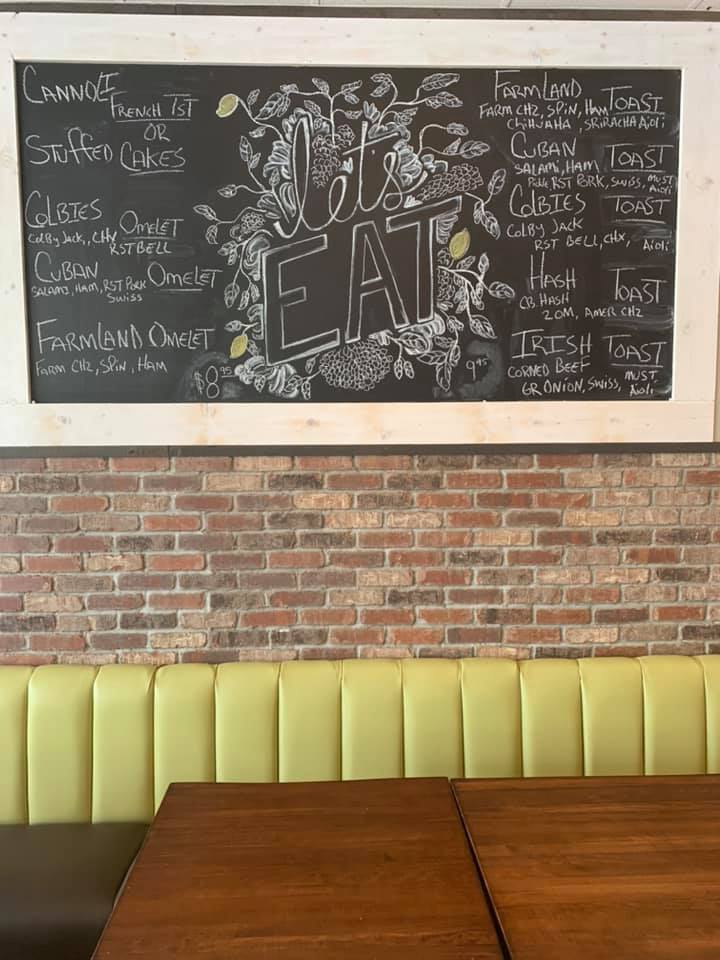 CANNOLI
FRENCH TST
OR
STUFFED CAKES
COLBIES OMELET
COLBY JACK, CHX
RST BELL
CUBAN OMELET
SALAMI, HAM, RST PORK
SWISS
FARMLAND OMELET
FARM CHZ, SPIN, HAM
$8.95
let's
EAT
9.95
FARMLAND TOAST
FARM CHZ, SPIN, HAM
CHIHUAHA, SRIRACHA Aioli
CUBAN TOAST
SALAMI, HAM,
Pickle RST PORK, SWISS, MUST
Aioli
COLBIES TOAST
COLBY JACK
RST BELL, CHX, Aioli
HASH TOAST
CB HASH
2OM, AMER CHZ
IRISH TOAST
CORNED BEEF
GR ONION, SWISS, MUST
Aioli